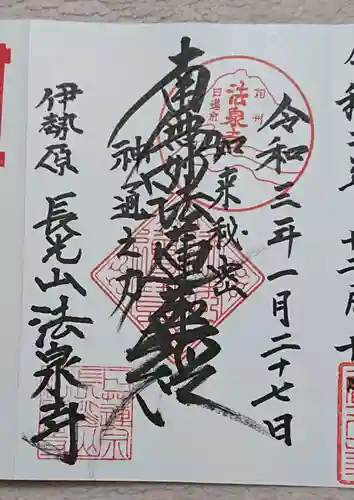 令和三年一月二十七日
如来秘密
南無妙法蓮華経
神通之力
伊勢原 長光山法泉寺
相州
法泉寺
日蓮宗